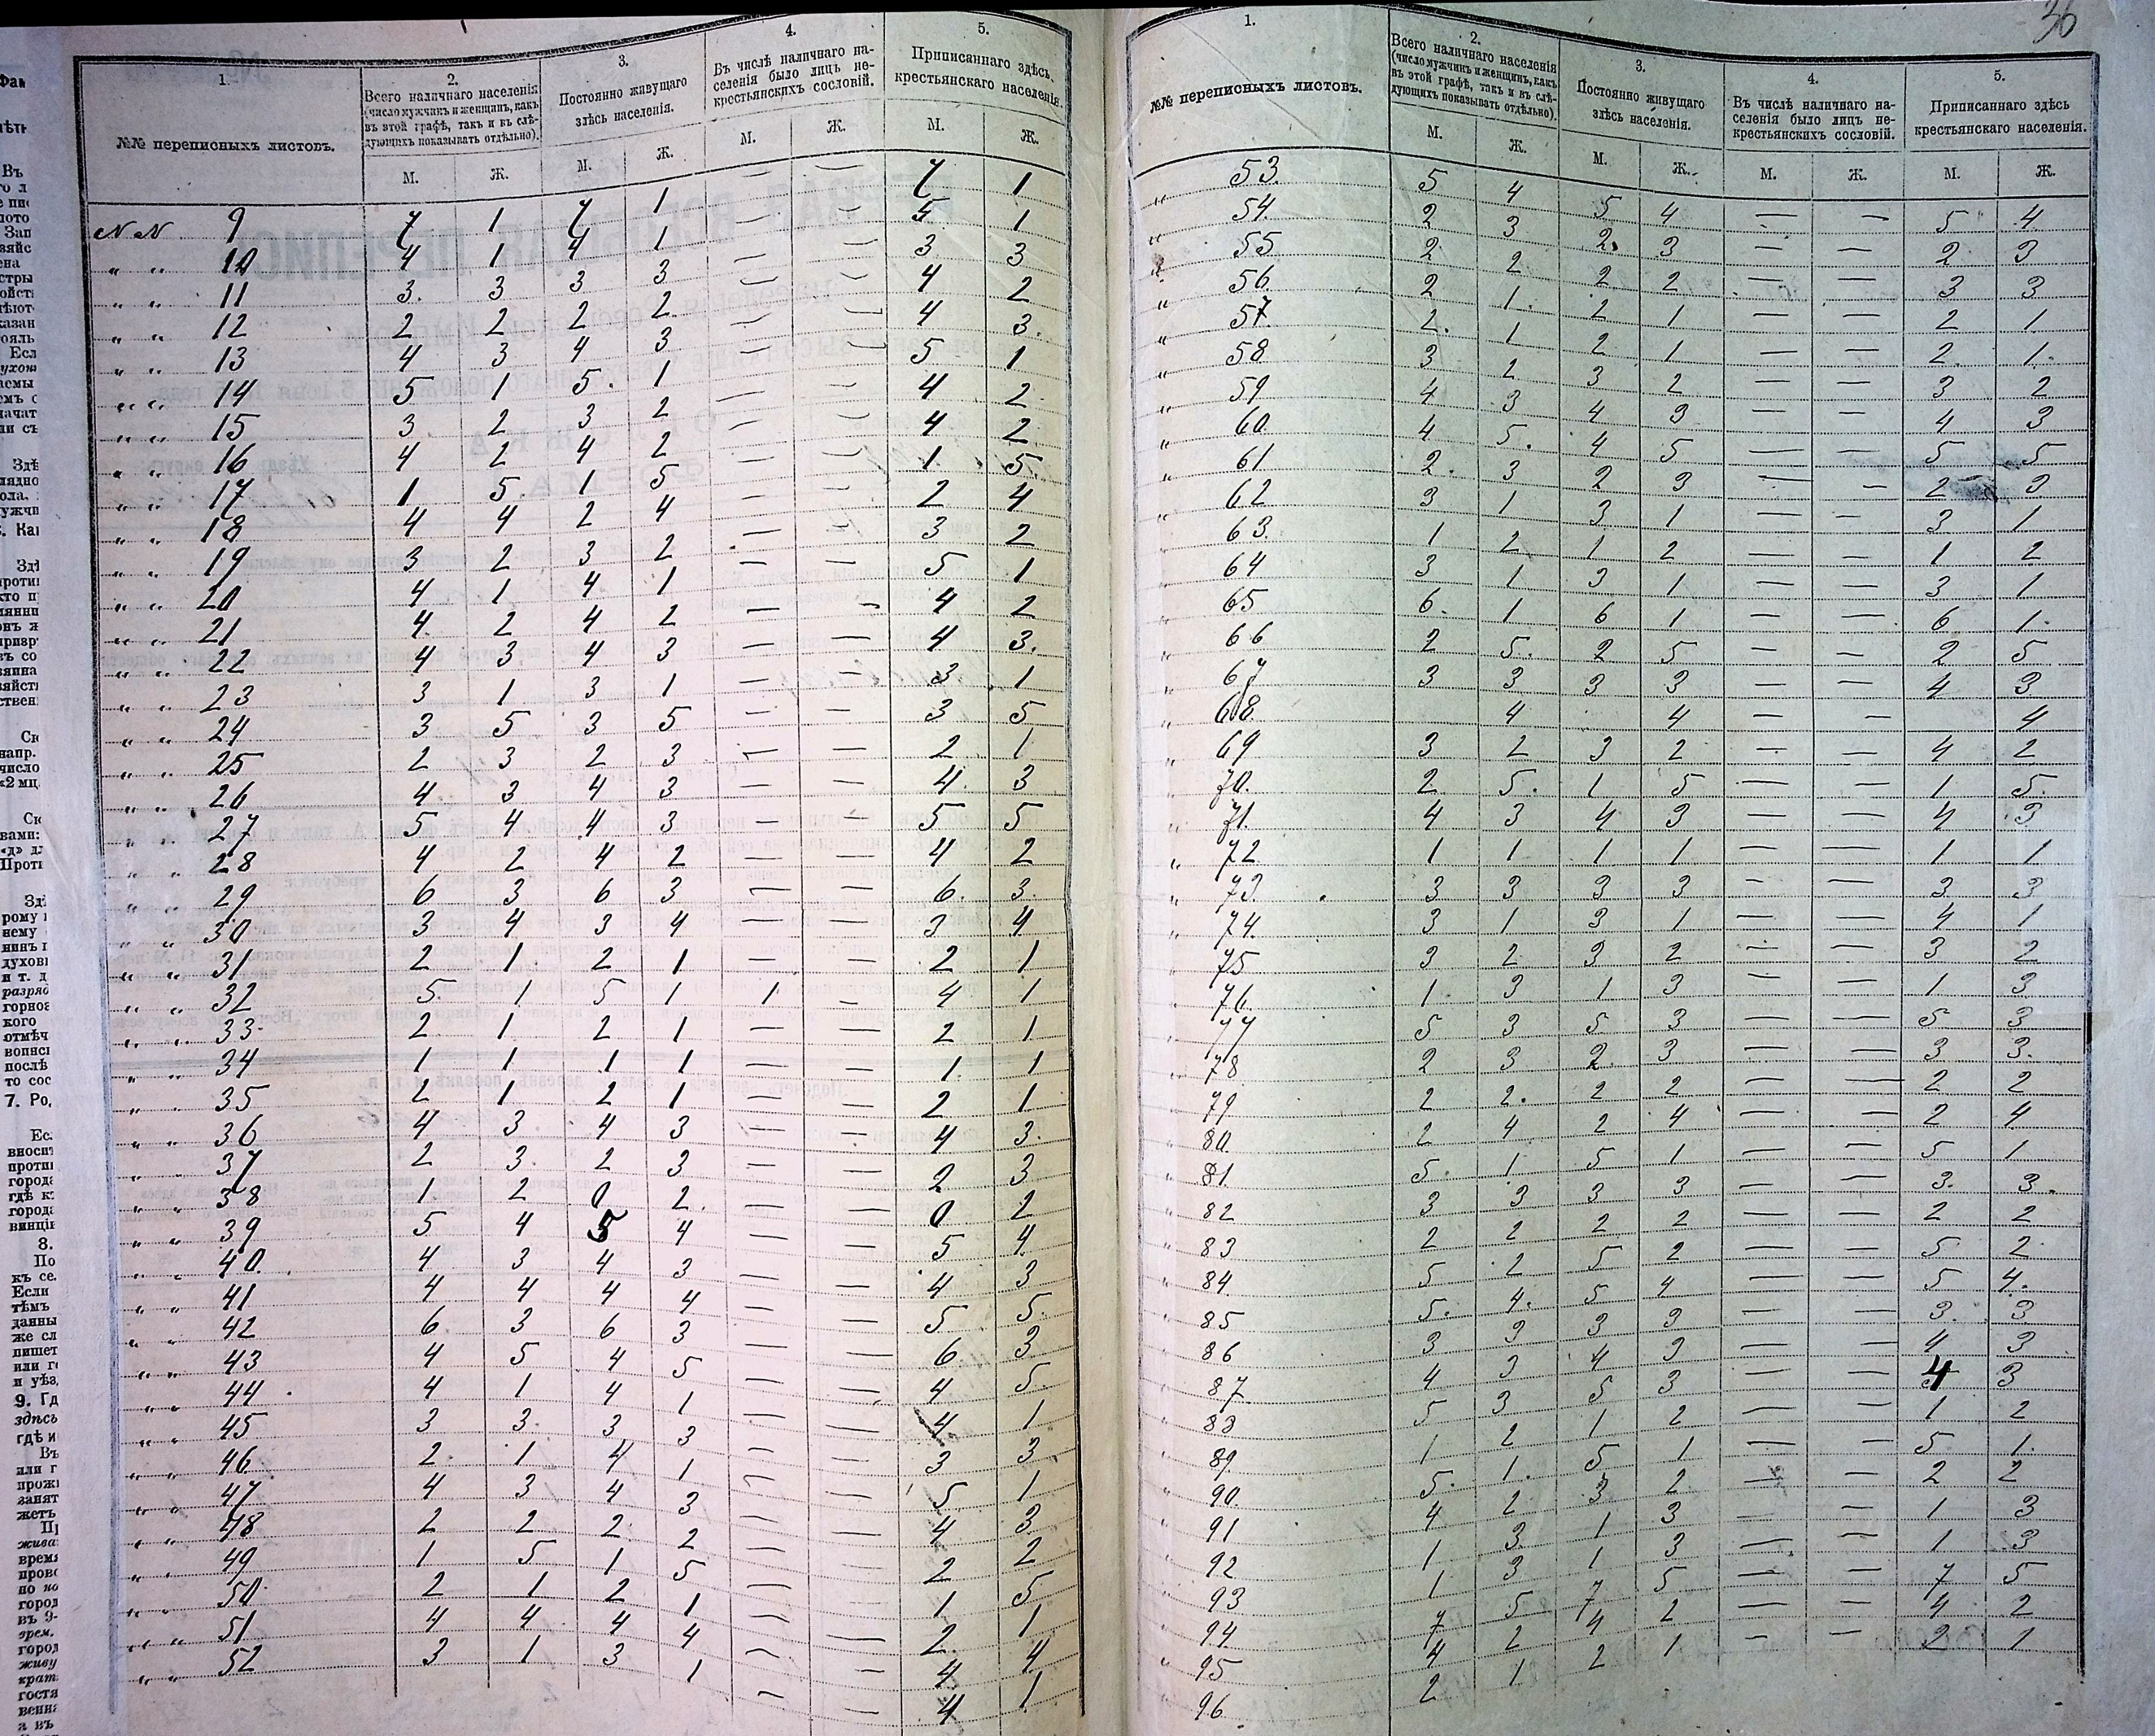 1.
2.
Всего наличнаго населенія (число мужчинъ и женщинъ, какъ въ этой графѣ, такъ и въ слѣдующихъ показывать отдѣльно).
3.
Постоянно живущаго здѣсь населенія.
4.
Въ числѣ наличнаго населенія было лицъ некрестьянскихъ сословій.
5.
Приписаннаго здѣсь крестьянскаго населенія.
№№ переписныхъ листовъ.
М. Ж. М. Ж. М. Ж. М. Ж.
№№ 9 7 1 7 1 — — 7 1
" " 10 4 1 4 1 — — 5 1
" " 11 3 3 3 3 — — 3 3
" " 12 2 2 2 2 — — 4 2
" " 13 4 3 4 3 — — 4 3
" " 14 5 1 5 1 — — 5 1
" " 15 3 2 3 2 — — 4 2
" " 16 4 2 4 2 — — 4 2
" " 17 1 5 1 5 — — 1 5
" " 18 4 4 2 4 — — 2 4
" " 19 3 2 3 2 — — 3 2
" " 20 4 1 4 1 — — 5 1
" " 21 4 2 4 2 — — 4 2
" " 22 4 3 4 3 — — 4 3
" " 23 3 1 3 1 — — 3 1
" " 24 3 5 3 5 — — 3 5
" " 25 2 3 2 3 — — 2 1
" " 26 4 3 4 3 — — 4 3
" " 27 5 4 4 3 — — 5 5
" " 28 4 2 4 2 — — 4 2
" " 29 6 3 6 3 — — 6 3
" " 30 3 4 3 4 — — 3 4
" " 31 2 1 2 1 — — 2 1
" " 32 5 1 5 1 1 — 4 1
" " 33 2 1 2 1 — — 2 1
" " 34 1 1 1 1 — — 1 1
" " 35 2 1 2 1 — — 2 1
" " 36 4 3 4 3 — — 4 3
" " 37 2 3 2 3 — — 2 3
" " 38 1 2 0 2 — — 0 2
" " 39 5 4 5 4 — — 5 4
" " 40 4 3 4 3 — — 4 3
" " 41 4 4 4 4 — — 5 5
" " 42 6 3 6 3 — — 6 3
" " 43 4 5 4 5 — — 4 5
" " 44 4 1 4 1 — — 4 1
" " 45 3 3 3 3 — — 3 3
" " 46 2 1 4 1 — — 5 1
" " 47 4 3 4 3 — — 4 3
" " 48 2 2 2 2 — — 2 2
" " 49 1 5 1 5 — — 1 5
" " 50 2 1 2 1 — — 2 1
" " 51 4 4 4 4 — — 4 4
" " 52 3 1 3 1 — — 4 1
36
1.
2.
Всего наличнаго населенія (число мужчинъ и женщинъ, какъ въ этой графѣ, такъ и въ слѣдующихъ показывать отдѣльно).
3.
Постоянно живущаго здѣсь населенія.
4.
Въ числѣ наличнаго населенія было лицъ некрестьянскихъ сословій.
5.
Приписаннаго здѣсь крестьянскаго населенія.
№№ переписныхъ листовъ.
М. Ж. М. Ж. М. Ж. М. Ж.
" 53 5 4 5 4 — — 5 4
" 54 2 3 2 3 — — 2 3
" 55 2 2 2 2 — — 3 3
" 56 2 1 2 1 — — 2 1
" 57 2 1 2 1 — — 2 1
" 58 3 2 3 2 — — 3 2
" 59 4 3 4 3 — — 4 3
" 60 4 5 4 5 — — 5 5
" 61 2 3 2 3 — — 2 3
" 62 3 1 3 1 — — 3 1
" 63 1 2 1 2 — — 1 2
" 64 3 1 3 1 — — 3 1
" 65 6 1 6 1 — — 6 1
" 66 2 5 2 5 — — 2 5
" 67 3 3 3 3 — — 4 3
" 68 4 4 — — 4
" 69 3 2 3 2 — — 4 2
" 70 2 5 1 5 — — 1 5
" 71 4 3 4 3 — — 4 3
" 72 1 1 1 1 — — 1 1
" 73 3 3 3 3 — — 3 3
" 74 3 1 3 1 — — 4 1
" 75 3 2 3 2 — — 3 2
" 76 1 3 1 3 — — 1 3
" 77 5 3 5 3 — — 5 3
" 78 2 3 2 3 — — 3 3
" 79 2 2 2 2 — — 2 2
" 80 2 4 2 4 — — 2 4
" 81 5 1 5 1 — — 5 1
" 82 3 3 3 3 — — 3 3
" 83 2 2 2 2 — — 2 2
" 84 5 2 5 2 — — 5 2
" 85 5 4 5 4 — — 5 4
" 86 3 3 3 3 — — 3 3
" 87 4 3 4 3 — — 4 3
" 88 5 3 5 3 — — 4 3
" 89 1 2 1 2 — — 1 2
" 90 5 1 5 1 — — 5 1
" 91 4 2 3 2 — — 2 2
" 92 1 3 1 3 — — 1 3
" 93 1 3 1 3 — — 1 3
" 94 7 5 7 5 — — 7 5
" 95 4 2 4 2 — — 4 2
" 96 2 1 2 1 — — 2 1